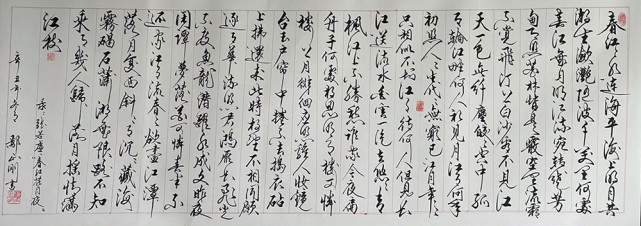 春江潮水连海平海上明月共
潮生滟滟随波千万里何处
春江无月明江流宛转绕芳
甸月照花林皆是霰空里流霜
不觉飞汀上白沙看不见江
天一色无纤尘皎皎空中孤
月轮江畔何人初见月江月何年
初照人人生代代无穷已江月年年
只相似不知江月待何人但见长
江送流水白云一片去悠悠青
枫江上不胜愁谁家今夜扁
舟子何处相思明月楼可怜
楼上月徘徊应照离人妆镜
台玉户帘中卷不去捣衣砧
上拂还来此时相望不相闻愿
逐月华流照君鸿雁长飞光
不度鱼龙潜跃水成文昨夜
闲潭梦落花可怜春半不
还家江水流春去欲尽江潭
落月复西斜斜月沉沉藏海
雾碣石潇湘无限路不知
乘月几人归落月摇情满
江树
张若虚春江花月夜
辛丑年冬